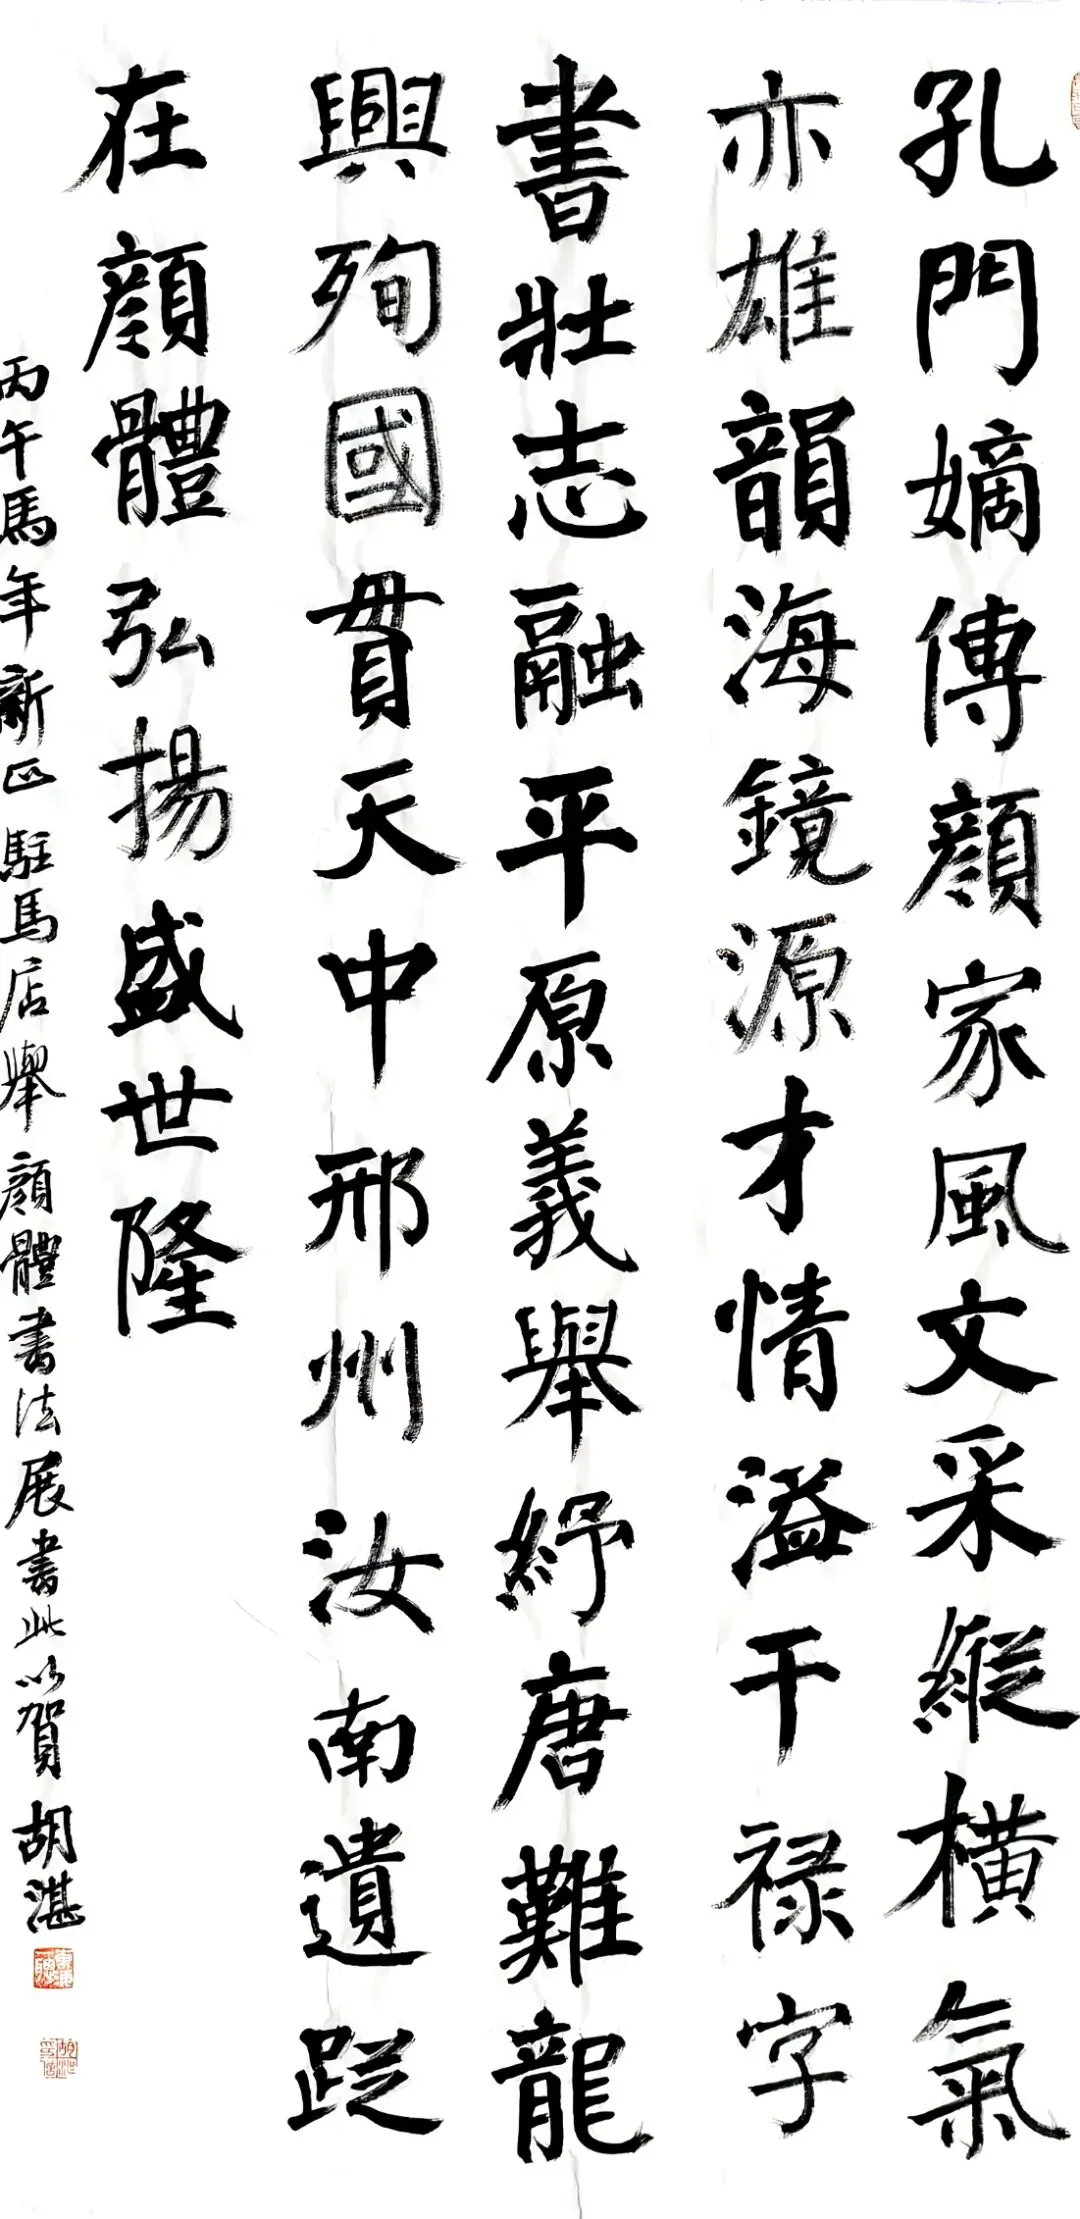 孔門嫡傳顔家風文采縱横氣
亦雄韻海鏡源才情溢干禄字
書壯志融平原義舉紓唐難龍
興殉國貫天中邢州汝南遺蹤
在顔體弘揚盛世隆
丙午馬年新正駐馬店舉顔體書法展書此以賀胡湛